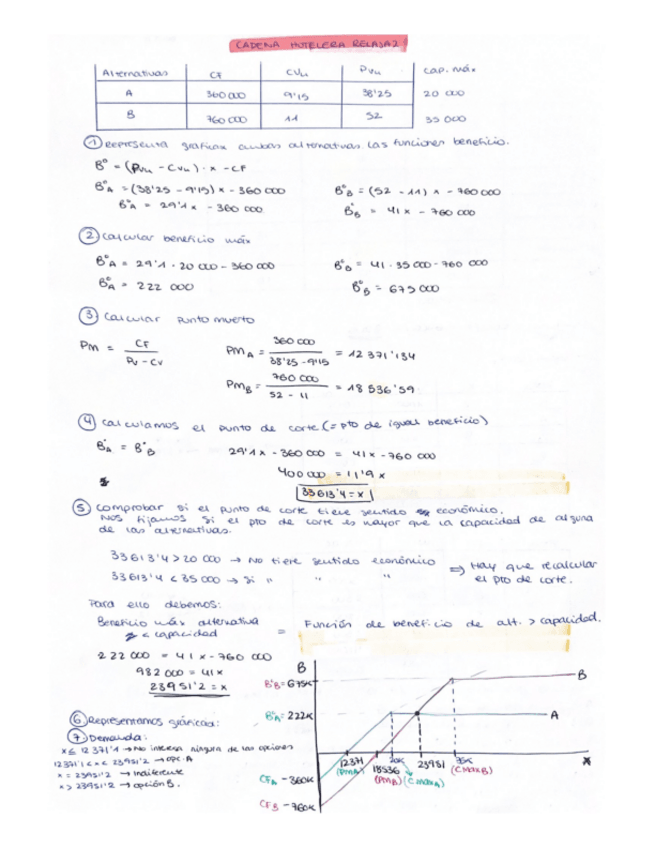 CADENA HOTELERA RELAJAZ
Alternativas CF CVu PVu cap. máx
A 360 000 9'15 38'25 20 000
B 760 000 11 52 35 000
1 Representa gráficam ambas alternativas las funciones beneficio.
Bº = (PVu - CVu) · x - CF
BºA = (38'25 - 9'15) x - 360 000 BºB = (52 - 11) x - 760 000
BºA = 29'1 x - 360 000 BºB = 41 x - 760 000
2 Calcular beneficio máx
BºA = 29'1 · 20 000 - 360 000 BºB = 41 · 35 000 - 760 000
BºA = 222 000 BºB = 675 000
3 Calcular punto muerto
PM = CF / Pv - Cv PMA = 360 000 / 38'25 - 9'15 = 12 371'134
PMB = 760 000 / 52 - 11 = 18 536'59
4 Calculamos el punto de corte (= pto de igual beneficio)
BºA = BºB 29'1x - 360 000 = 41x - 760 000
400 000 = 11'9 x
33 613'4 = x
5 Comprobar si el punto de corte tiene sentido económico.
Nos fijamos si el pto de corte es mayor que la capacidad de alguna
de las alternativas.
33 613'4 > 20 000 → No tiene sentido económico ⇒ Hay que recalcular
33 613'4 < 35 000 → Si " " " el pto de corte.
Para ello debemos:
Beneficio máx alternativa = Función de beneficio de alt. > capacidad.
< capacidad
222 000 = 41x - 760 000
982 000 = 41x
23 951'2 = x
B
BºB = 675K B
BºA = 222K A
6 Representamos gráficam:
7 Demanda:
x ≤ 12 371'1 → No interesa ninguna de las opciones
12371'1 < x < 23951'2 → opc. A
x = 23951'2 → Indiferente
x > 23951'2 → opción B.
12371 20K 23951 35K x
(PMA) 18536 (CMaxB)
(PMB) (CMaxA)
CFA - 360K
CFB - 760K